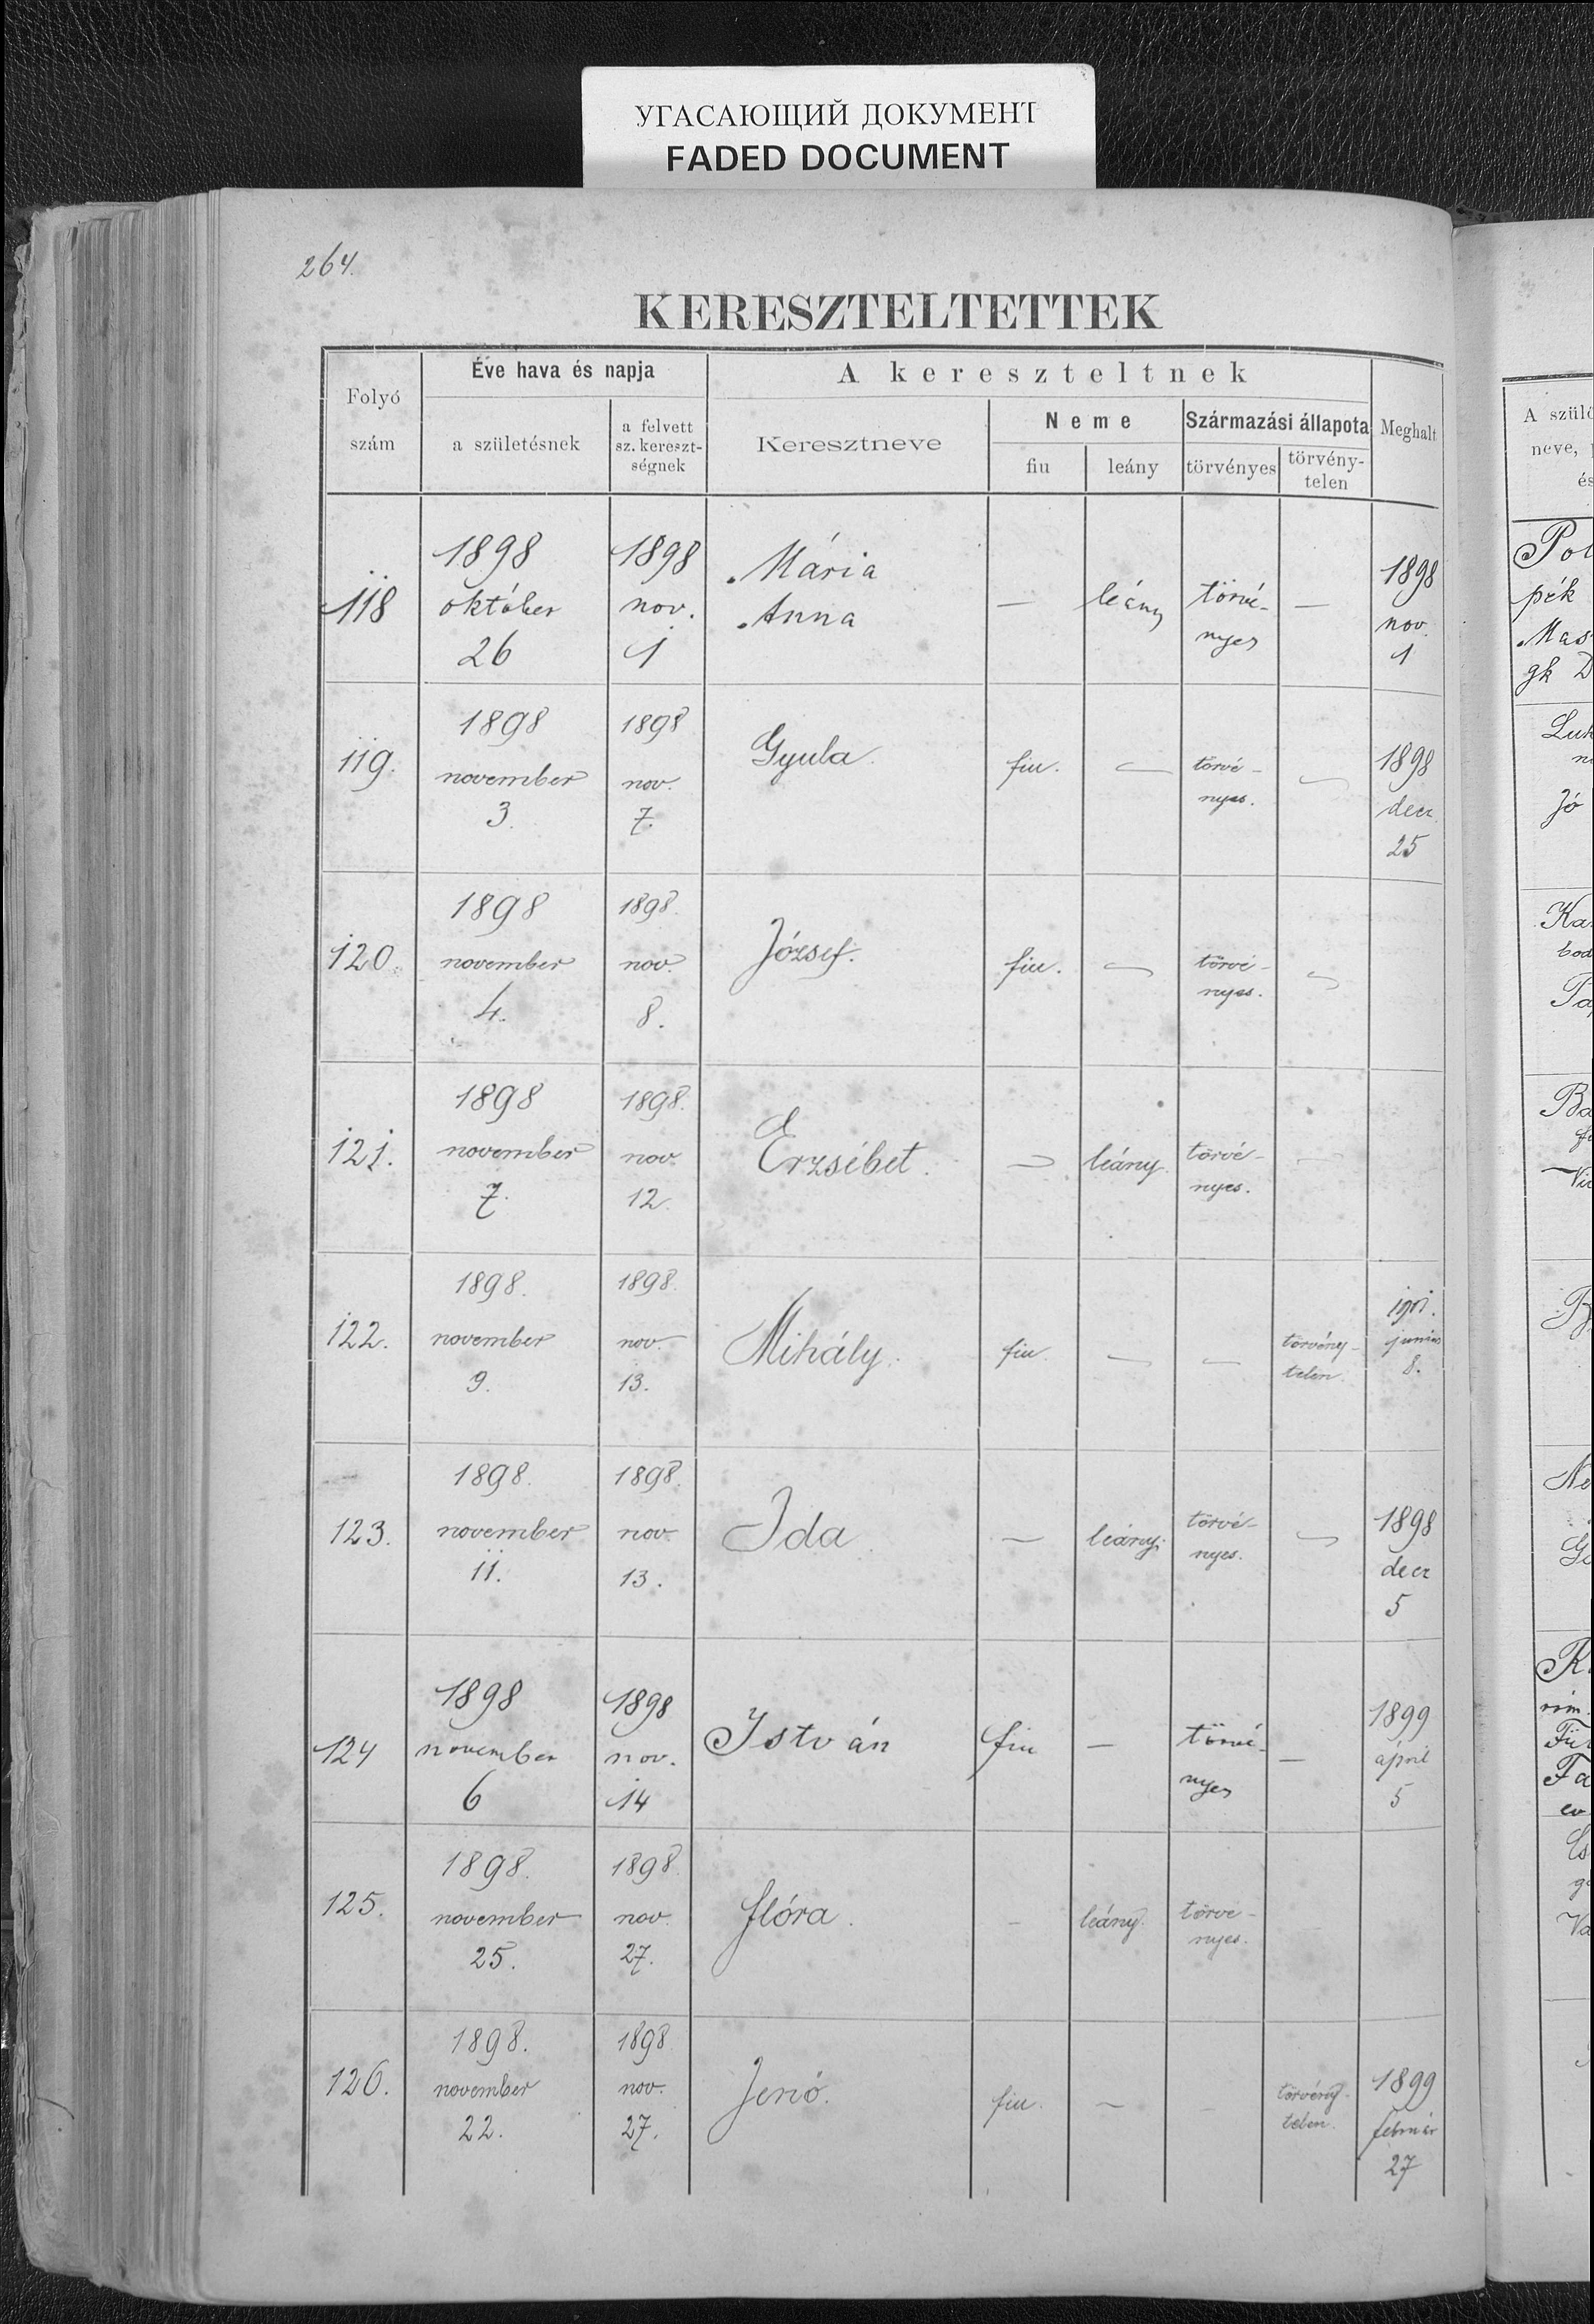 УГАСАЮЩИЙ ДОКУМЕНТ
FADED DOCUMENT
264.
KERESZTELTETTEK
Folyó szám
Éve hava és napja
a születésnek
a felvett sz. kereszt-ségnek
A kereszteltnek
Keresztneve
Neme
fiu
leány
Származási állapota
törvényes
törvény-telen
Meghalt
118
1898 október 26
1898 nov. 1
Mária Anna
—
leány
törvé-nyes
—
1898 nov. 1
119.
1898 november 3.
1898 nov. 7.
Gyula
fiu.
—
törvé-nyes.
—
1898 decz 25
120.
1898 november 4.
1898. nov. 8.
József.
fiu.
—
törvé-nyes.
—
121.
1898 november 7.
1898. nov. 12.
Erzsébet.
—
leány.
törvé-nyes.
—
122.
1898. november 9.
1898. nov. 13.
Mihály.
fiu.
—
—
törvény-telen.
1901. junius 8.
123.
1898. november 11.
1898. nov. 13.
Ida
—
leány.
törvé-nyes.
—
1898 decz 5
124
1898 november 6
1898 nov. 14
István
fiu
—
törvé-nyes
—
1899 ápril 5
125.
1898. november 25.
1898. nov. 27.
flóra.
-
leány.
törve-nyes.
126.
1898. november 22.
1898 nov. 27.
Jenő.
fiu.
—
-
törvény-telen.
1899 február 27
A szülő
neve,
és
Pol
pék
Mas
gk D
Luk
Jó
Ka
bod
Ta
Ba
Ne
K
rim.
Fü
Fa
ev
Va